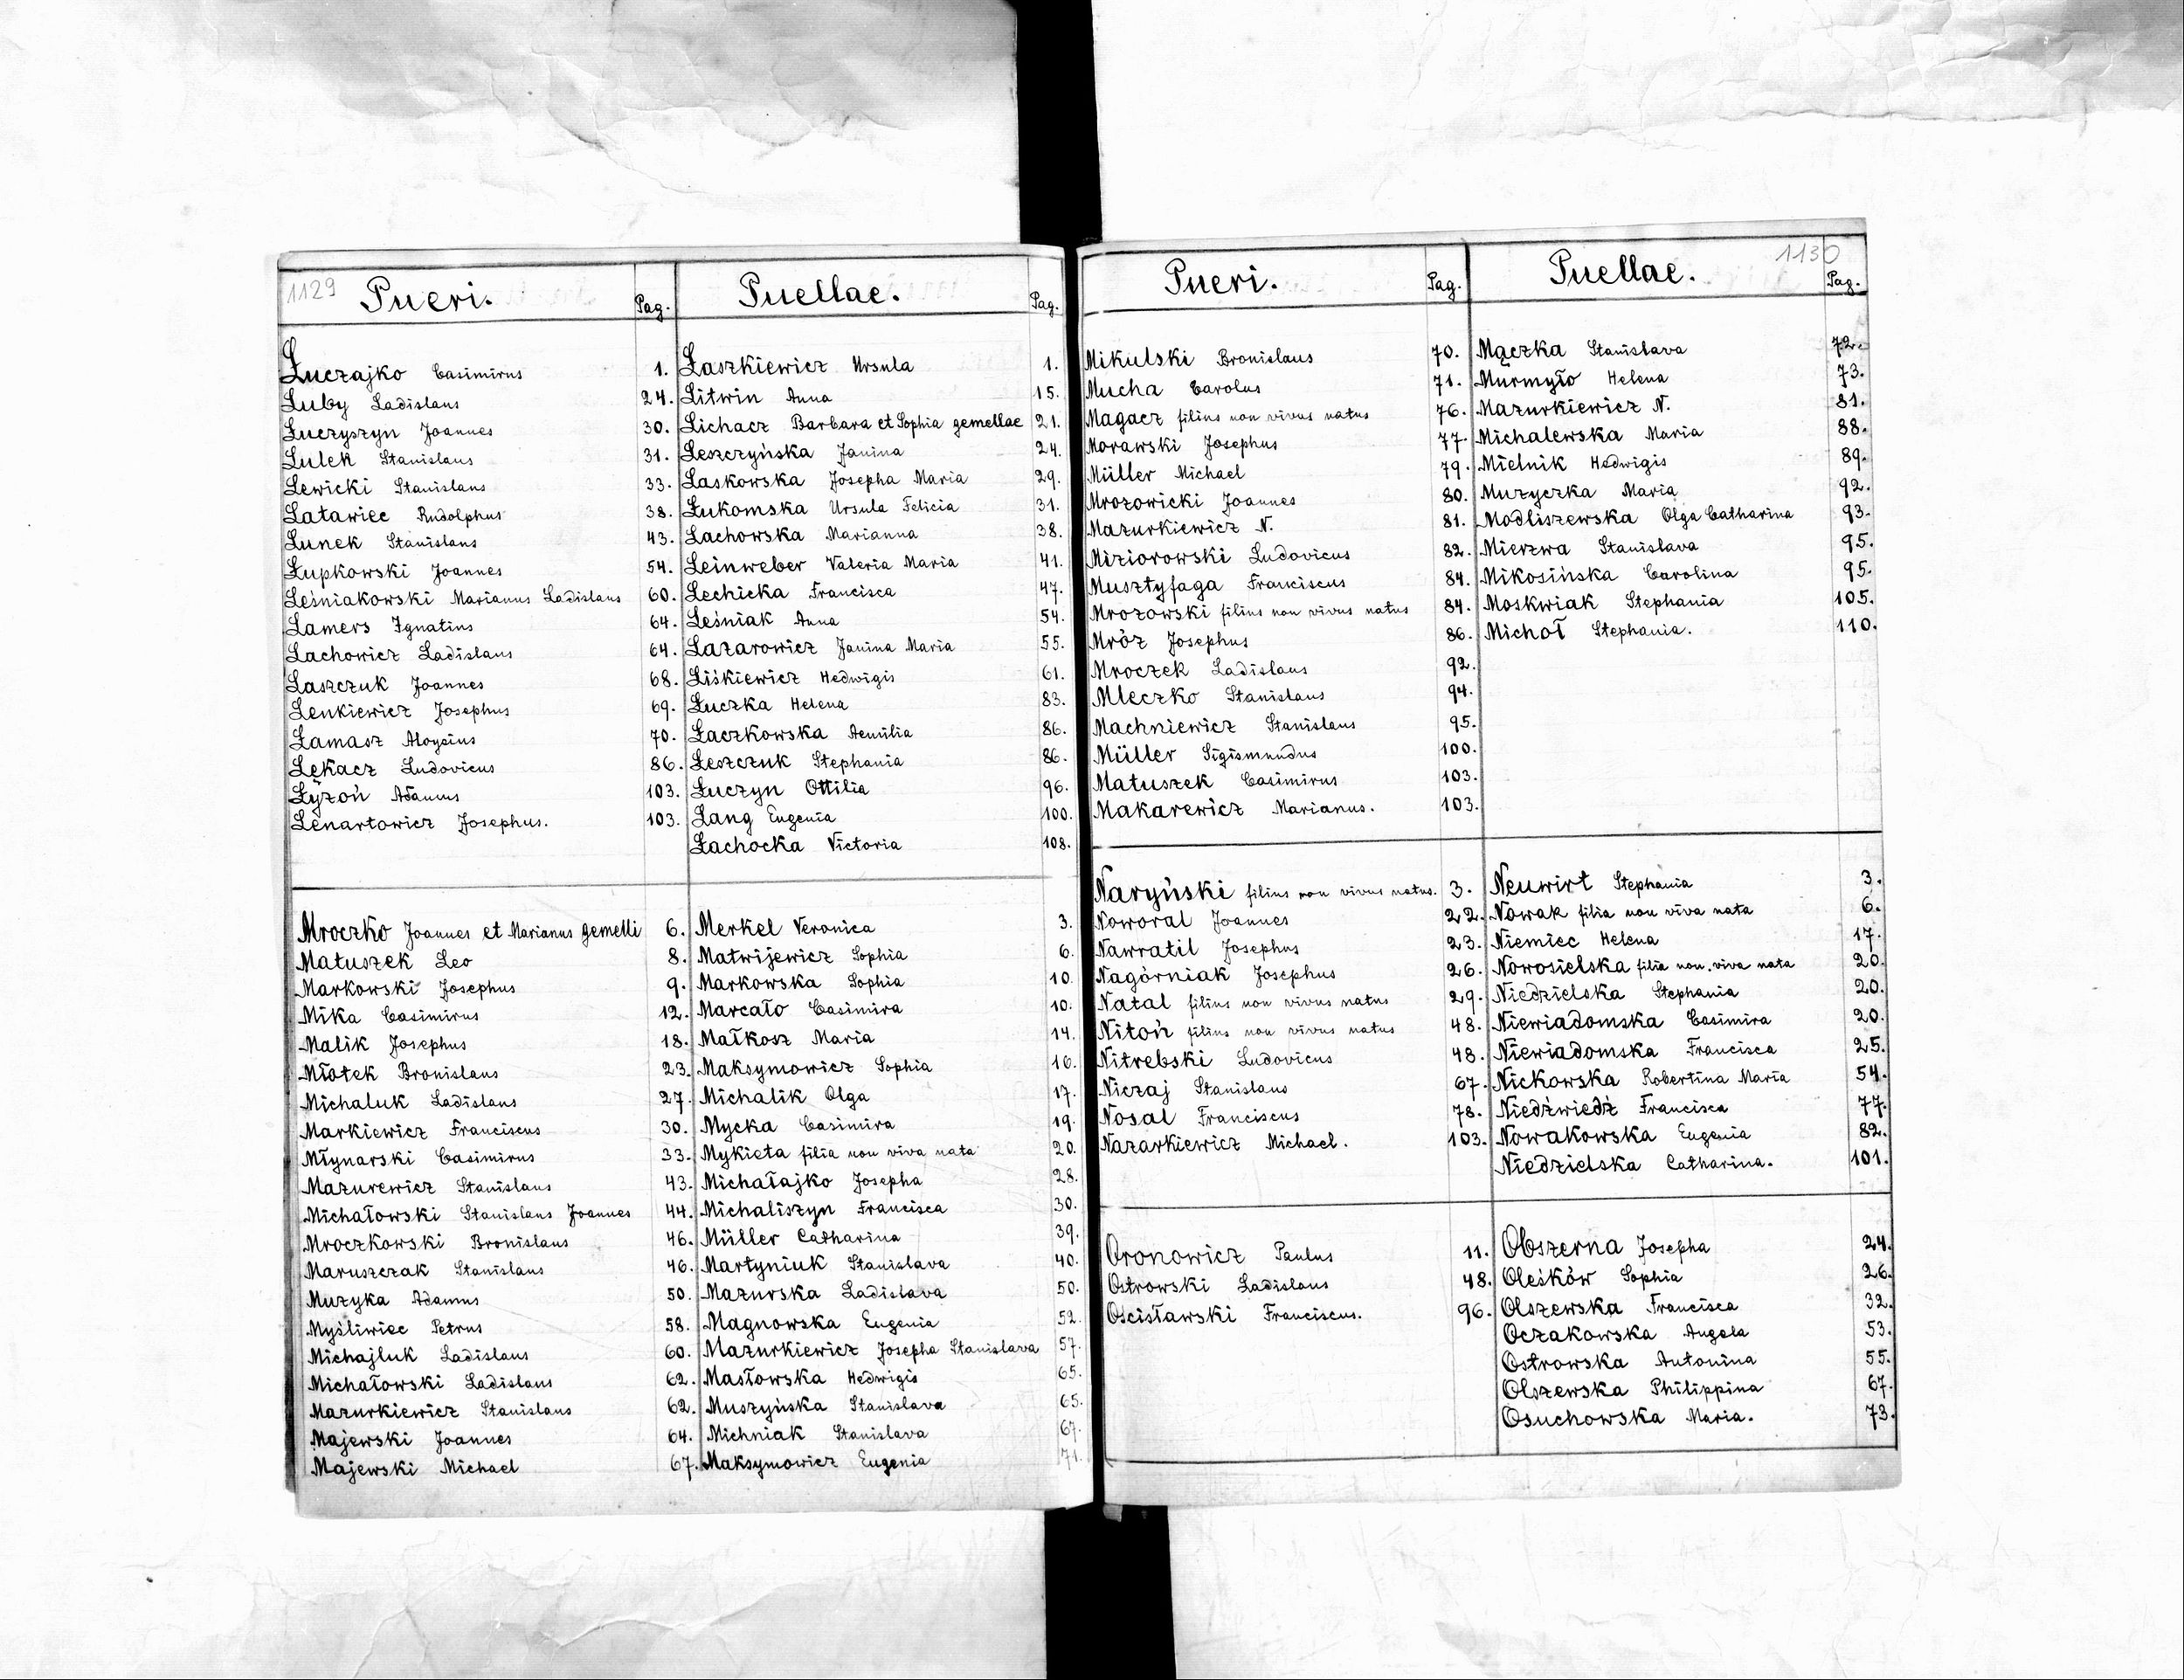 1129
Pueri. Pag.
Łuczajko Casimirus 1.
Luby Ladislaus 24.
Łuczyszyn Joannes 30.
Lulek Stanislaus 31.
Lewicki Stanislaus 33.
Latawiec Rudolphus 38.
Lunek Stanislaus 43.
Łupkowski Joannes 54.
Leśniakowski Marianus Ladislaus 60.
Lamers Ignatius 64.
Lachowicz Ladislaus 64.
Laszczuk Joannes 68.
Lenkiewicz Josephus 69.
Łamasz Aloysius 70.
Lękacz Ludovicus 86.
Łyżoń Adamus 103.
Lenartowicz Josephus. 103.
Mroczko Joannes et Marianus gemelli 6.
Matuszek Leo 8.
Markowski Josephus 9.
Mika Casimirus 12.
Malik Josephus 18.
Młotek Bronislaus 23.
Michaluk Ladislaus 27.
Markiewicz Franciscus 30.
Młynarski Casimirus 33.
Mazurewicz Stanislaus 43.
Michałowski Stanislaus Joannes 44.
Mroczkowski Bronislaus 46.
Maruszczak Stanislaus 46.
Muzyka Adamus 50.
Myśliwiec Petrus 58.
Michajluk Ladislaus 60.
Michałowski Ladislaus 62.
Mazurkiewicz Stanislaus 62.
Majewski Joannes 64.
Majewski Michael 67.
Puellae. Pag.
Łaszkiewicz Ursula 1.
Litwin Anna 15.
Lichacz Barbara et Sophia gemellae 21.
Leszczyńska Janina 24.
Laskowska Josepha Maria 29.
Łukomska Ursula Felicia 31.
Lachowska Marianna 38.
Leinweber Valeria Maria 41.
Lechicka Francisca 47.
Leśniak Anna 54.
Lazarowicz Janina Maria 55.
Liśkiewicz Hedwigis 61.
Łuczka Helena 83.
Łaczkowska Aemilia 86.
Leszczuk Stephania 86.
Łuczyn Ottilia 96.
Lang Eugenia 100.
Łachocka Victoria 108.
Merkel Veronica 3.
Matwijewicz Sophia 6.
Markowska Sophia 10.
Marcało Casimira 10.
Małkosz Maria 14.
Maksymowicz Sophia 16.
Michalik Olga 17.
Mycka Casimira 19.
Mykieta filia non viva nata 20.
Michałajko Josepha 28.
Michaliszyn Francisca 30.
Müller Catharina 39.
Martyniuk Stanislava 40.
Mazurska Ladislava 50.
Magnowska Eugenia 52.
Mazurkiewicz Josepha Stanislava 57.
Masłowska Hedwigis 65.
Muszyńska Stanislava 65.
Michniak Stanislava 67.
Maksymowicz Eugenia 71.
1130
Pueri. Pag.
Mikulski Bronislaus 70.
Mucha Carolus 71.
Magacz filius non vivus natus 76.
Morawski Josephus 77.
Müller Michael 79.
Mrozowicki Joannes 80.
Mazurkiewicz N. 81.
Miziorowski Ludovicus 82.
Musztyfaga Franciscus 84.
Mrozowski filius non vivus natus 84.
Mróz Josephus 86.
Mroczek Ladislaus 92.
Mleczko Stanislaus 94.
Machniewicz Stanislaus 95.
Müller Sigismundus 100.
Matuszek Casimirus 103.
Makarewicz Marianus. 103.
Naryński filius non vivus natus. 3.
Noworal Joannes 22.
Nawratil Josephus 23.
Nagórniak Josephus 26.
Natal filius non vivus natus 29.
Nitoń filius non vivus natus 48.
Nitrebski Ludovicus 48.
Niczaj Stanislaus 67.
Nosal Franciscus 78.
Nazarkiewicz Michael. 103.
Oronowicz Paulus 11.
Ostrowski Ladislaus 48.
Oscisławski Franciscus. 96.
Puellae. Pag.
Mączka Stanislava 72.
Murmyło Helena 73.
Mazurkiewicz N. 81.
Michalewska Maria 88.
Mielnik Hedwigis 89.
Muzyczka Maria 92.
Modliszewska Olga Catharina 93.
Mierzwa Stanislava 95.
Mikosińska Carolina 95.
Moskwiak Stephania 105.
Michoł Stephania. 110.
Neuwirt Stephania 3.
Nowak filia non viva nata 6.
Niemiec Helena 17.
Nowosielska filia non viva nata 20.
Niedzielska Stephania 20.
Niewiadomska Casimira 20.
Niewiadomska Francisca 25.
Nickowska Robertina Maria 54.
Niedźwiedź Francisca 77.
Nowakowska Eugenia 82.
Niedzielska Catharina. 101.
Obszerna Josepha 24.
Oleśków Sophia 26.
Olszewska Francisca 32.
Oczakowska Angela 53.
Ostrowska Antonina 55.
Olszewska Philippina 67.
Osuchowska Maria. 73.